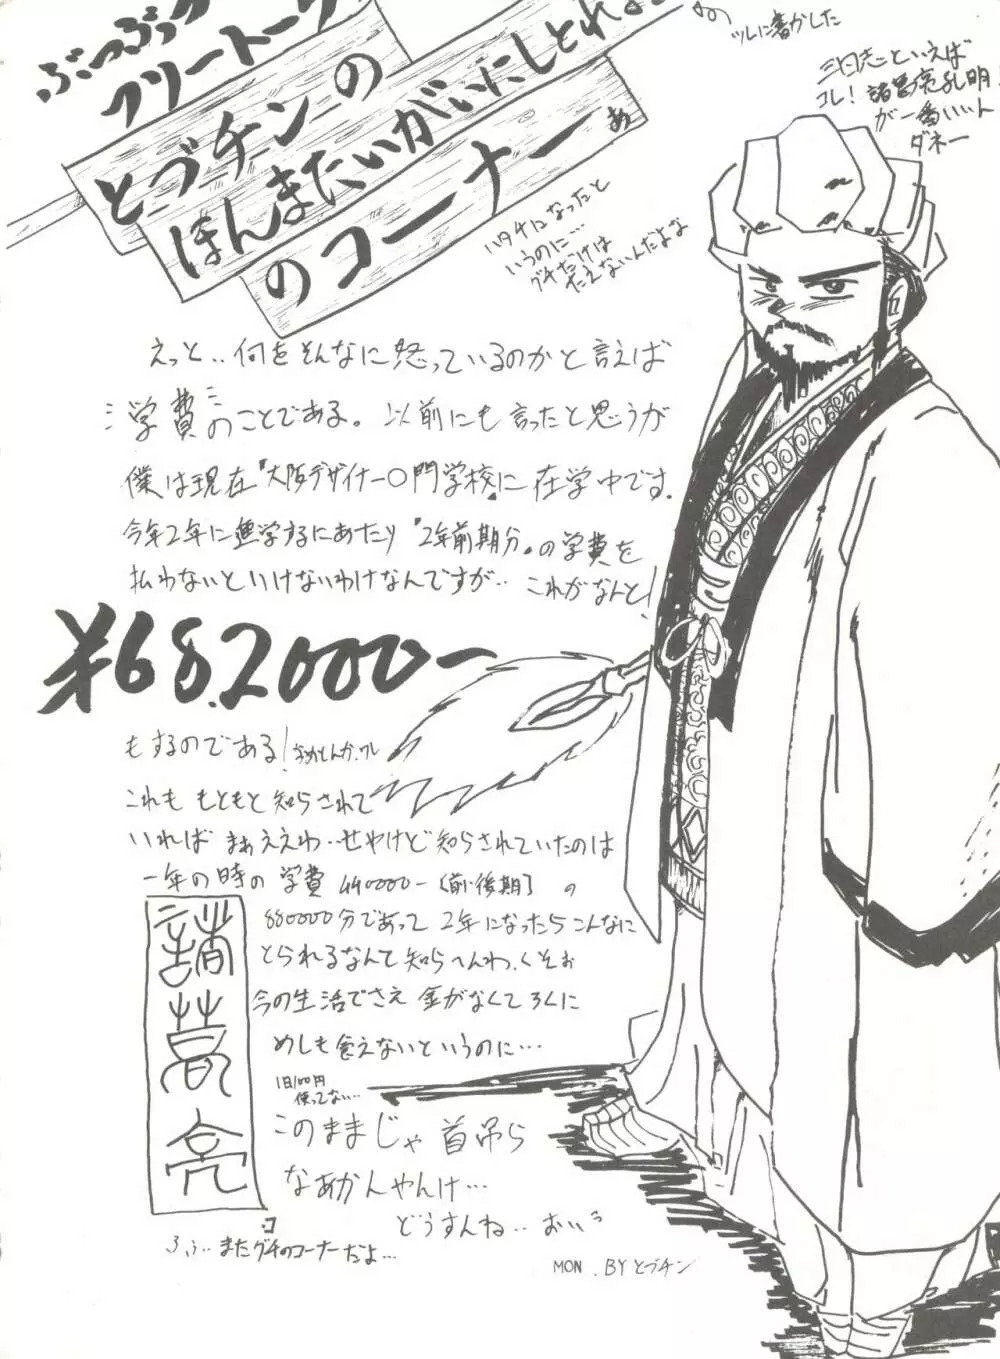 ぶつぶつ
フリートーク
とブチンの
ほんまたいがいにしとれよ
のコーナー
ぁ
ツレに書かした
三国志といえば
コレ！諸葛亮孔明
が一番いいん
ダネー
ハタチになったと
いうのに…
グチだけは
たえないんだよな
えっと‥何をそんなに怒っているのかと言えば
学費のことである。以前にも言ったと思うが
僕は現在『大阪デザイナー〇門学校』に在学中です。
今年2年に進学するにあたり『2年前期分』の学費を
払わないといけないわけなんですが‥これがなんと！
¥682000ー
もするのである！なめとんか、ワレ
これももともと知らされて
いればまぁええわ‥せやけど知らされていたのは
一年の時の学費440000ー〔前・後期〕の
880000分であって2年になったらこんなに
とられるなんて知らへんわ、くそぉ
今の生活でさえ金がなくてろくに
めしも食えないというのに…
1日100円
使ってない…
このままじゃ首吊ら
なあかんやんけ…
どうすんね‥おい
諸葛亮
ふぅ‥またグチのコーナーだよ…
MON.BYとブチン